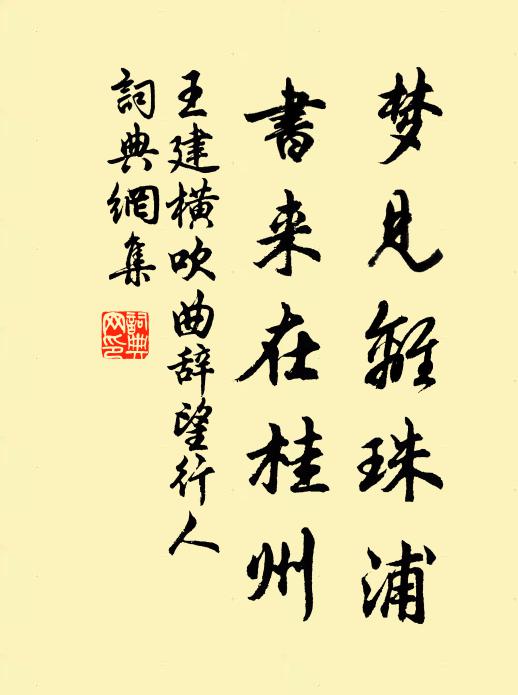 梦见離珠浦
書来在桂州
王建横吹曲辞望行人
詞典網集
詞典網印